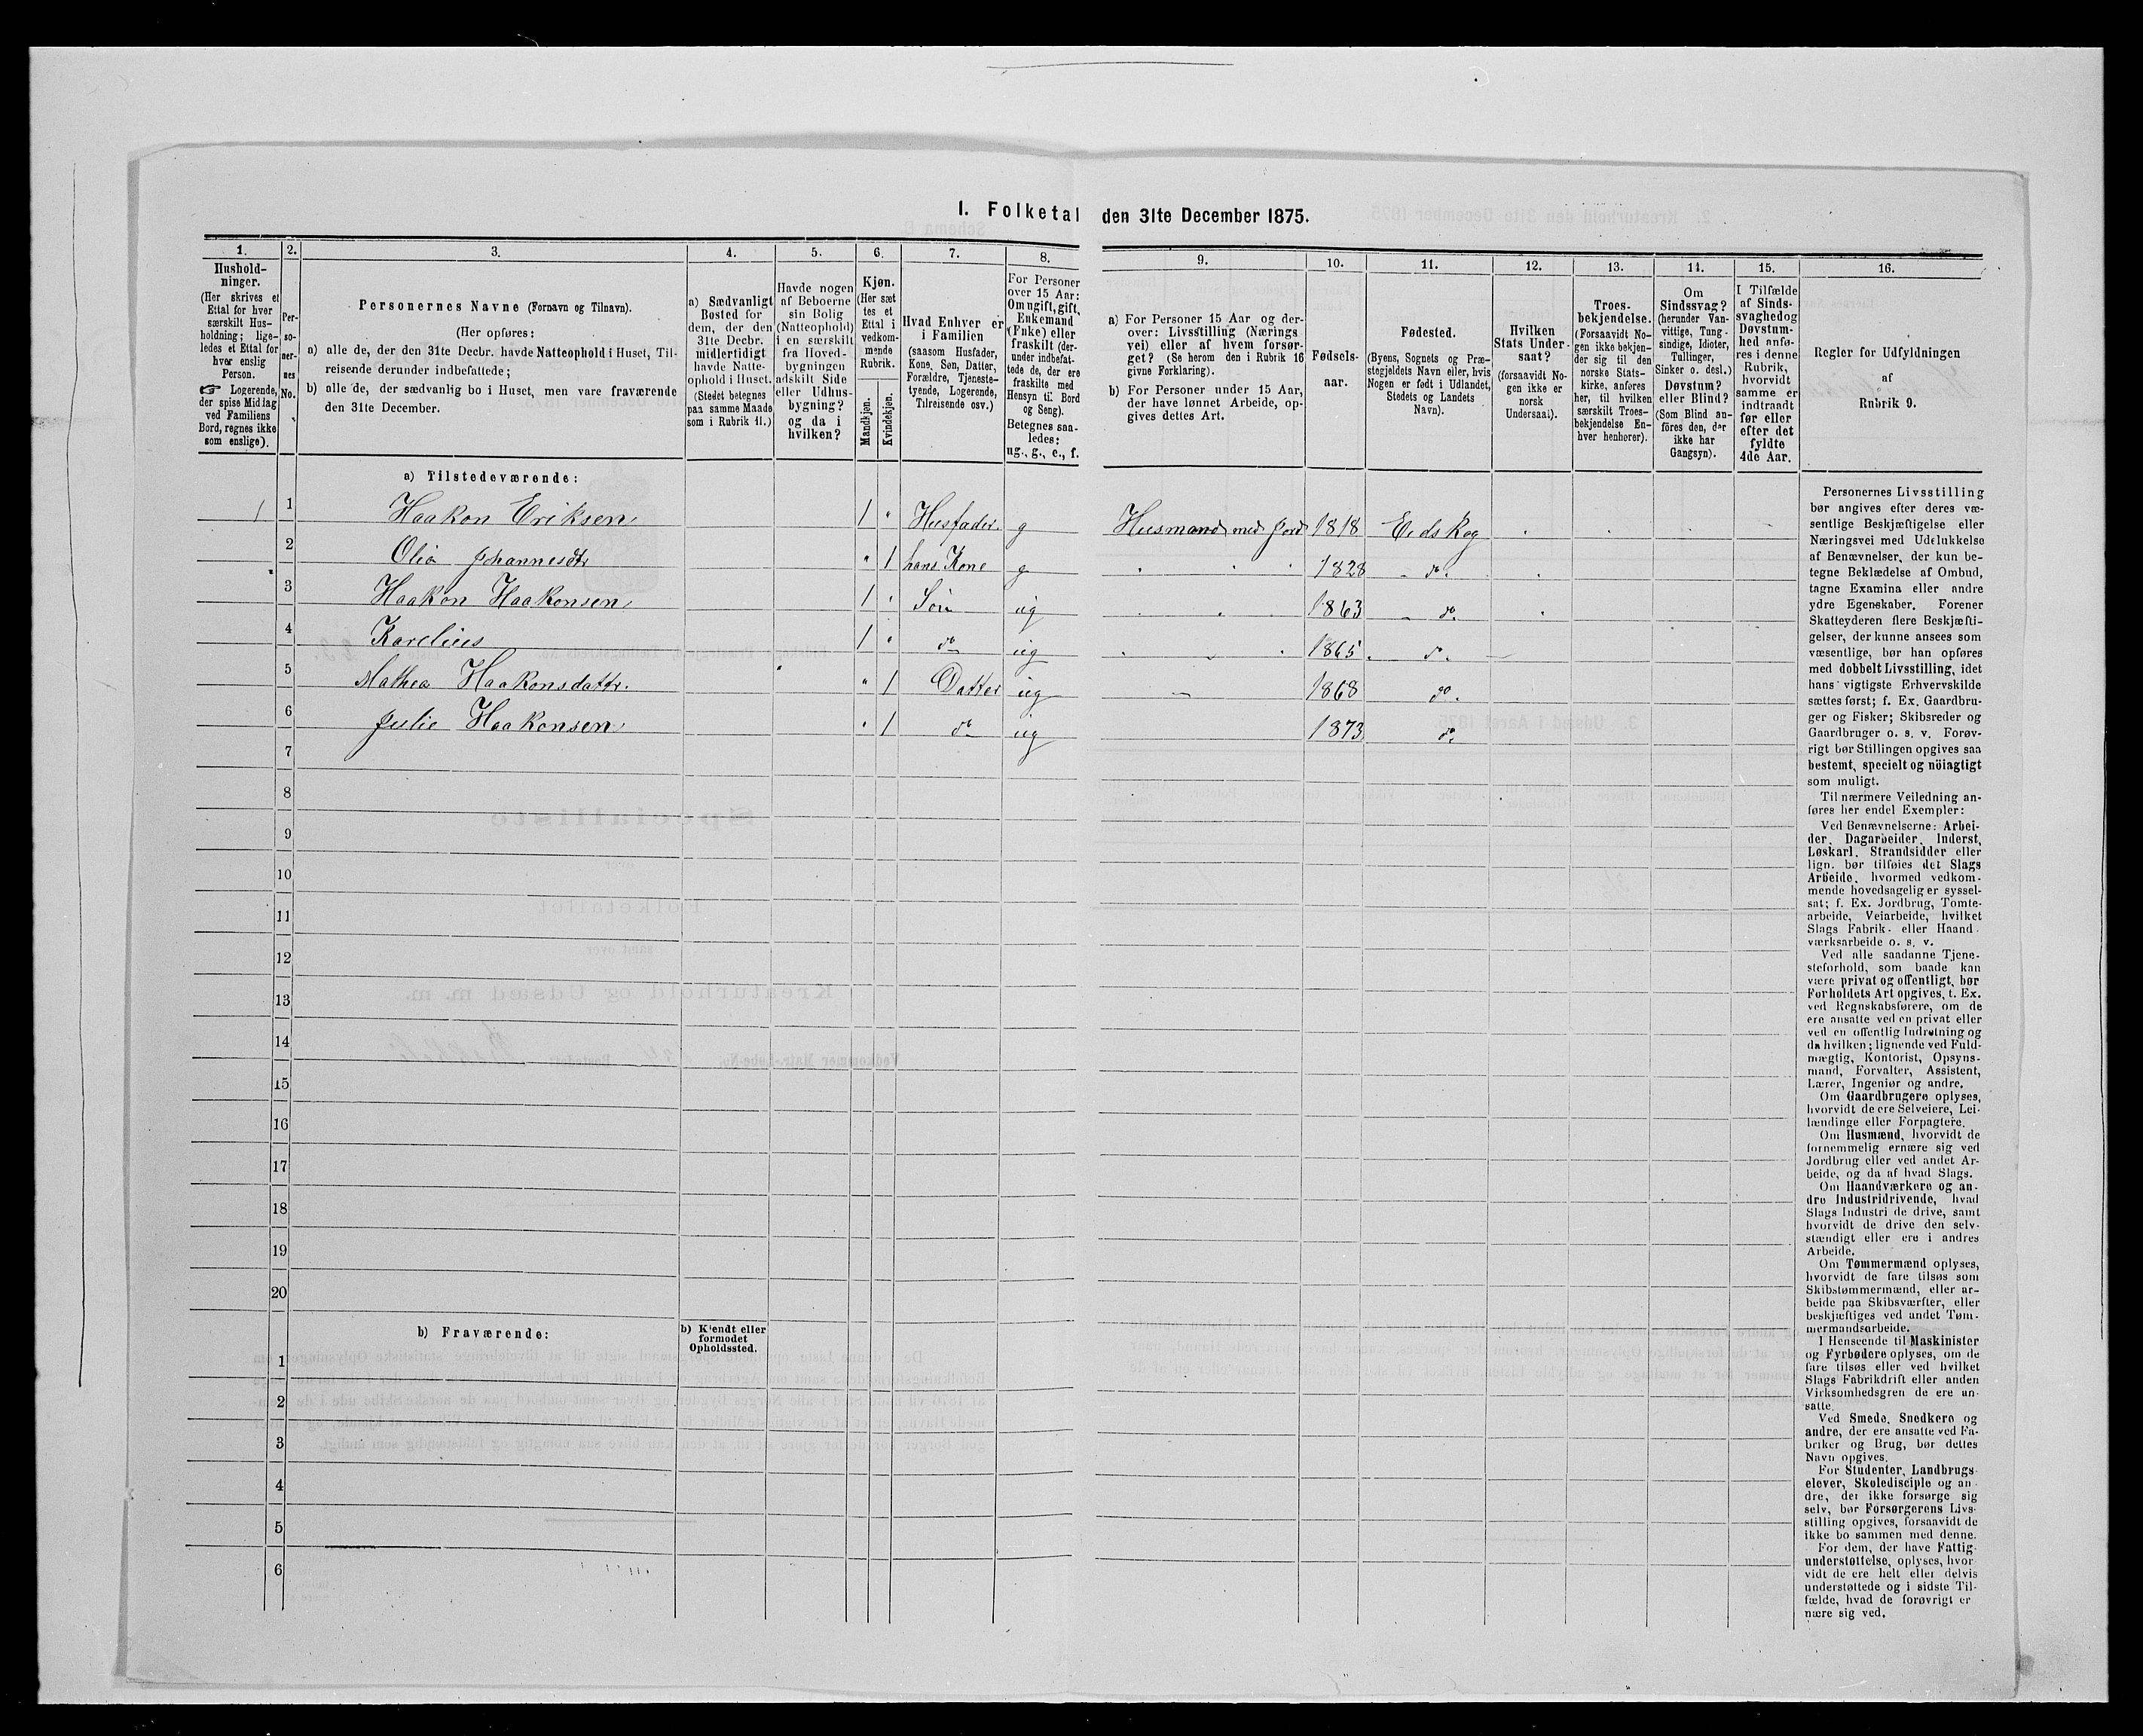 1. Folketal den 31te December 1875.
1. 2. 3. 4. 5. 6. 7. 8. 9. 10. 11. 12. 13. 14. 15. 16.
Hushold-
ninger.
(Her skrives et
Ettal for hver
særskilt Hus-
holdning; lige-
ledes et Ettal for
hver enslig
Person.
☞ Logerende,
der spise Middag
ved Familiens
Bord, regnes ikke
som enslige).
Per-
so-
ner-
nes
No.
Personernes Navne (Fornavn og Tilnavn).
(Her opføres:
a) alle de, der den 31te Decbr. havde Natteophold i Huset, Til-
reisende derunder indbefattede;
b) alle de, der sædvanlig bo i Huset, men vare fraværende
den 31te December.
a) Sædvanligt
Bosted for
dem, der den
31te Decbr.
midlertidigt
havde Natte-
ophold i Huset.
(Stedet betegnes
paa samme Maade
som i Rubrik 11.)
Havde nogen
af Beboerne
sin Bolig
(Natteophold)
i en særskilt
fra Hoved-
bygningen
adskilt Side
eller Udhus-
bygning?
og da i
hvilken?
Kjøn.
(Her sæt
tes et
Ettal i
vedkom-
mende
Rubrik.
Mandkjøn.
Kvindekjøn.
Hvad Enhver er
i Familien
(saasom Husfader,
Kone, Søn, Datter,
Forældre, Tjeneste-
tyende, Logerende,
Tilreisende osv.)
For Personer
over 15 Aar:
Om ugift, gift,
Enkemand
(Enke) eller
fraskilt (der-
under indbefat-
tede de, der ere
fraskilte med
Hensyn til Bord
og Seng).
Betegnes saa-
ledes:
ug., g., e., f.
a) For Personer 15 Aar og der-
over: Livsstilling (Nærings
vei) eller af hvem forsør-
get? (Se herom den i Rubrik 16
givne Forklaring).
b) For Personer under 15 Aar,
der have lønnet Arbeide, op-
gives dettes Art.
Fødsels-
aar.
Fødested.
(Byens, Sognets og Præ-
stegjeldets Navn eller, hvis
Nogen er født i Udlandet,
Stedets og Landets
Navn).
Hvilken
Stats Under-
saat?
(forsaavidt No-
gen ikke er
norsk
Undersaat).
Troes-
bekjendelse.
(Forsaavidt No-
gen ikke bekjen-
der sig til den
norske Stats-
kirke, anføres
her, til hvilken
særskilt Troes-
bekjendelse En-
hver henhører).
Om
Sindssvag?
(herunder Van-
vittige, Tung-
sindige, Idioter,
Tullinger,
Sinker o. desl.)
Døvstum?
eller Blind?
(Som Blind an-
føres den, der
ikke har
Gangsyn).
I Tilfælde
af Sinds-
svaghed og
Døvstum-
hed anfø-
res i denne
Rubrik,
hvorvidt
samme er
indtraadt
før eller
efter det
fyldte
4de Aar.
Regler for Udfyldningen
af
Rubrik 9.
a) Tilstedeværende:
1 1 Haakon Eriksen 1 " Husfader g Husmand med Jord 1818 Eidskog
2 Olia Johannesdtr " 1 hans Kone g 1828 do
3 Haakon Haakonsen 1 " Søn ug 1863 do
4 Karelius 1 " do ug 1865 do
5 Mathea Haakonsdattr. " 1 Datter ug 1868 do
6 Julie Haakonsen " 1 do ug 1873 do
7
8
9
10
11
12
13
14
15
16
17
18
19
20
b) Fraværende:
b) Kjendt eller
formodet
Opholdssted.
1
2
3
4
5
6
Personernes Livsstilling
bør angives efter deres væ-
sentlige Beskjæftigelse eller
Næringsvei med Udelukkelse
af Benævnelser, der kun be-
tegne Beklædelse af Ombud,
tagne Examina eller andre
ydre Egenskaber. Forener
Skatteyderen flere Beskjæfti-
gelser, der kunne ansees som
væsentlige, bør han opføres
med dobbelt Livsstilling, idet
hans vigtigste Erhvervskilde
sættes først; f. Ex. Gaardbru-
ger og Fisker; Skibsreder og
Gaardbruger o. s. v. Forøv-
rigt bør Stillingen opgives saa
bestemt, specielt og nöiagtigt
som muligt.
Til nærmere Veiledning an-
føres her endel Exempler:
Ved Benævnelserne: Arbei-
der, Dagarbeider, Inderst,
Løskarl, Strandsidder eller
lign. bør tilføies det Slags
Arbeide, hvormed vedkom-
mende hovedsagelig er syssel-
sat; f. Ex. Jordbrug, Tomte-
arbeide, Veiarbeide, hvilket
Slags Fabrik- eller Haand-
værksarbeide o. s. v.
Ved alle saadanne Tjene-
steforhold, som baade kan
være privat og offentligt, bør
Forholdets Art opgives, f. Ex.
ved Regnskabsførere, om de
ere ansatte ved en privat eller
ved en offentlig Indretning og
da hvilken; lignende ved Fuld-
mægtig, Kontorist, Opsyns-
mand, Forvalter, Assistent,
Lærer, Ingeniør og andre.
Om Gaardbrugere oplyses,
hvorvidt de ere Selveiere, Lei-
lændinge eller Forpagtere.
Om Husmænd, hvorvidt de
fornemmelig ernære sig ved
Jordbrug eller ved andet Ar-
beide, og da af hvad Slags.
Om Haandværkere og an-
dre Industridrivende, hvad
Slags Industri de drive, samt
hvorvidt de drive den selv-
stændigt eller ere i andres
Arbeide.
Om Tømmermænd oplyses,
hvorvidt de fare tilsøs som
Skibstømmermænd, eller ar-
beide paa Skibsværfter, eller
beskjæftiges ved andet Tøm-
mermandsarbeide.
I Henseende til Maskinister
og Fyrbødere oplyses, om de
fare tilsøs eller ved hvilket
Slags Fabrikdrift eller anden
Virksomhedsgren de ere an-
satte.
Ved Smede, Snedkere og
andre, der ere ansatte ved Fa-
briker og Brug, bør dettes
Navn opgives.
For Studenter, Landbrugs-
elever, Skoledisciple og an-
dre, der ikke forsørge sig
selv, bør Forsørgerens Livs-
stilling opgives, forsaavidt de
ikke bo sammen med denne.
For dem, der have Fattig-
understøttelse, oplyses, hvor-
vidt de ere helt eller delvis
understøttede og i sidste Til-
fælde, hvad de forøvrigt er-
nære sig ved.